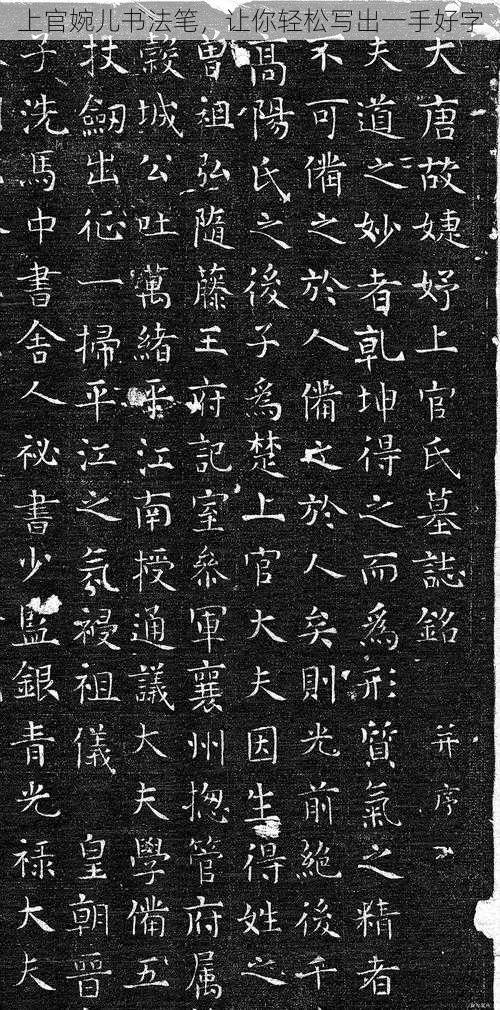 上官婉儿书法笔，让你轻松写出一手好字
大唐故婕妤上官氏墓誌銘 并序
夫道之妙者乹坤得之而為形質氣之精者
不可俻之於人俻之於人矣則光前絕後千
高陽氏之後子為楚上官大夫因生得姓之
曾祖弘隨藤王府記室叅軍襄州揔管府属
縠城公吐萬緒平江南授通議大夫學俻五
扙劒出征一掃平江之氛祲祖儀 皇朝晉
子洗馬中書舍人祕書少監銀青光禄大夫